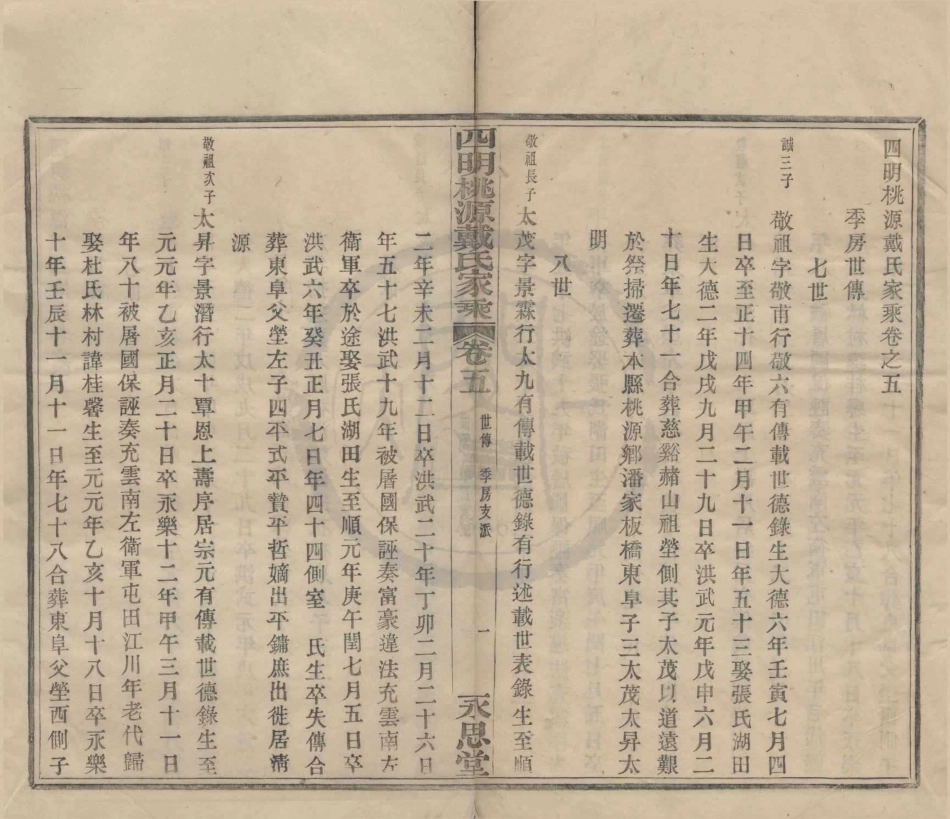 四明桃源戴氏家乘卷之五
季房世傳
七世
誠三子
敬祖字敬甫行敬六有傳載世德錄生大德六年壬寅七月四
日卒至正十四年甲午二月十一日年五十三娶張氏湖田
生大德二年戊戌九月二十九日卒洪武元年戊申六月二
十日年七十一合葬慈谿赭山祖塋側其子太茂以道遠艱
於祭掃遷葬本縣桃源鄉潘家板橋東阜子三太茂太昇太
明
八世
敬祖長子
太茂字景霖行太九有傳載世德錄有行述載世表錄生至順
四明桃源戴氏家乘
卷五
世傳 季房支派
一
永思堂
二年辛未二月十二日卒洪武二十年丁卯二月二十六日
年五十七洪武十九年被屠國保誣奏富豪違法充雲南左
衛軍卒於途娶張氏湖田生至順元年庚午閏七月五日卒
洪武六年癸丑正月七日年四十四側室 氏生卒失傳合
葬東阜父塋左子四平式平贊平哲嫡出平鏞庶出徙居清
源
敬祖次子
太昇字景潛行太十覃恩上壽序居宗元有傳載世德錄生至
元元年乙亥正月二十日卒永樂十二年甲午三月十一日
年八十被屠國保誣奏充雲南左衛軍屯田江川年老代歸
娶杜氏林村諱桂馨生至元元年乙亥十月十八日卒永樂
十年壬辰十一月十一日年七十八合葬東阜父塋西側子